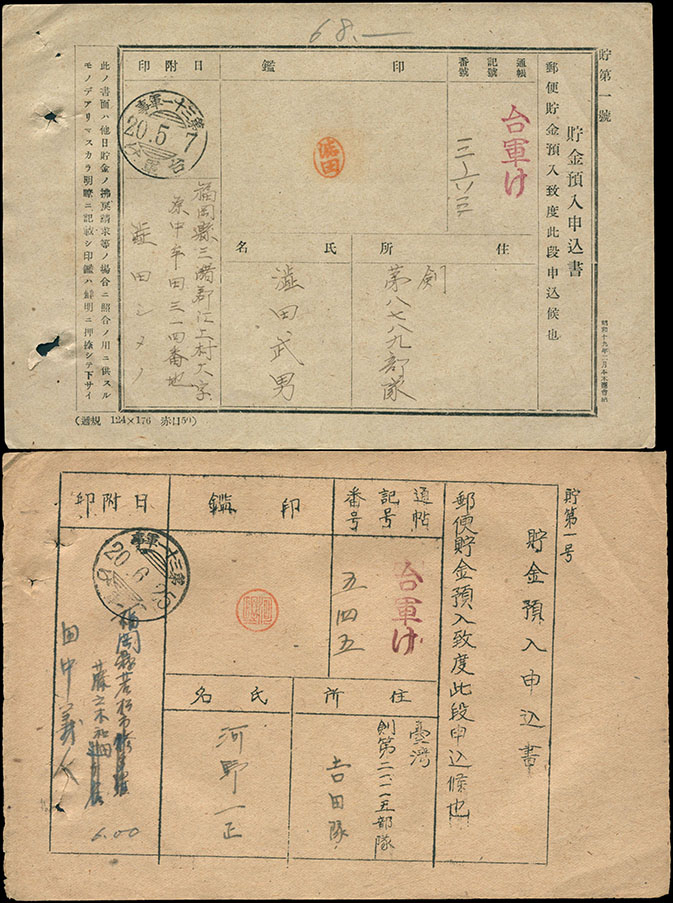 68.—
貯第一號
貯金預入申込書
郵便貯金預入致度此段申込候也
通帳
記號
番號
台軍け
印鑑
澁田
日附印
臺軍一十三第
20.5.7
台
住所
剣
第八七八九部隊
氏名
澁田武男
福岡縣三潴郡江上村大字
澁田シメノ
此ノ書面ハ他日貯金ノ拂戻請求等ノ場合ニ照合ノ用ニ供スル
モノデアリマスカラ明瞭ニ記載シ印鑑ハ鮮明ニ押捺シテ下サイ
(遞規 124×176 赤日50)
貯第一号
貯金預入申込書
郵便貯金預入致度此段申込候也
通帖
記号
番号
台軍け
五四五
印鑑
日附印
臺軍一十三第
20.6.25
住所
臺湾
剣第二一一五部隊
吉田隊
氏名
河野一正
田中義人
6.00